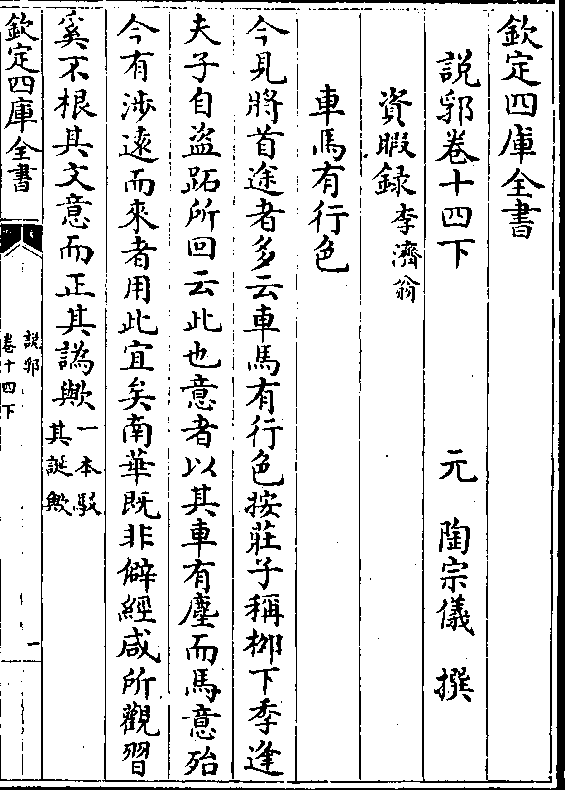 欽定四庫全書
說郛卷十四下
元 陶宗儀 撰
資暇録 李濟翁
車馬有行色
今見將首途者多云車馬有行色按莊子稱柳下季逢
夫子自盜跖所回云此也意者以其車有塵而馬意殆
今有涉遠而來者用此宜矣南華既非僻經咸所觀習
奚不根其文意而正其譌歟 一本駁
其誕歟
欽定四庫全書
說郛
卷十四下
一